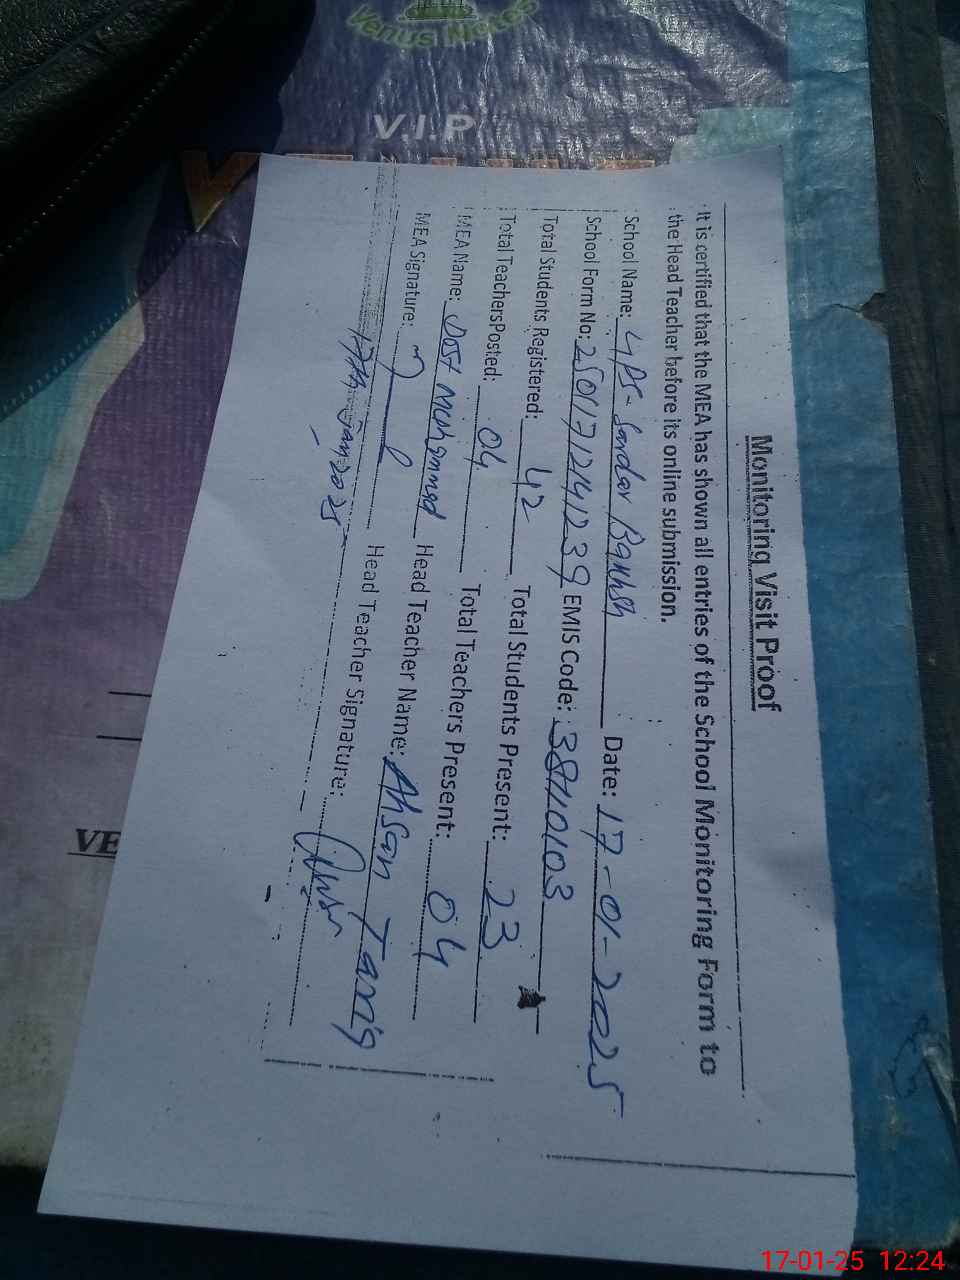 Venus Motor
V.I.P
Monitoring Visit Proof
It is certified that the MEA has shown all entries of the School Monitoring Form to
the Head Teacher before its online submission.
School Name: GPS - Sardar Bakhsh Date: 17-01-2025
School Form No: 2501171241239 EMIS Code: 38110103
Total Students Registered: 42 Total Students Present: 23
Total TeachersPosted: 04 Total Teachers Present: 04
MEA Name: Dost Muhammad Head Teacher Name: Ahsan Tariq
MEA Signature: Head Teacher Signature:
17th Jan 2025
VE
17-01-25 12:24